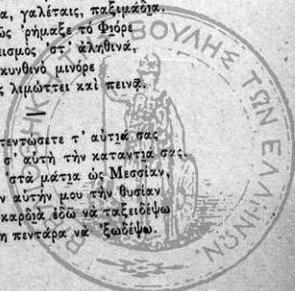 γαλέταις, παξιμάδια.
ῶς ῥήμαξε τὸ Φιόρε
εισμὸς ’στ’ ἀληθινά,
κυνθινὸ μινόρε
ς λιμώττει καὶ πεινᾷ.
τεντώσετε τ’ αὐτιά σας
σ’ αὐτὴ τὴν κατάντια σας,
’στὰ μάτια ὡς Μεσσίαν,
ν αὐτήν μου τὴν θυσίαν
καρδιὰ ἐδῶ νὰ ταξειδέψω
η πεντάρα νὰ ’ξωδέψω.
ΒΟΥΛΗΣ ΤΩΝ ΕΛΛΗΝΩΝ